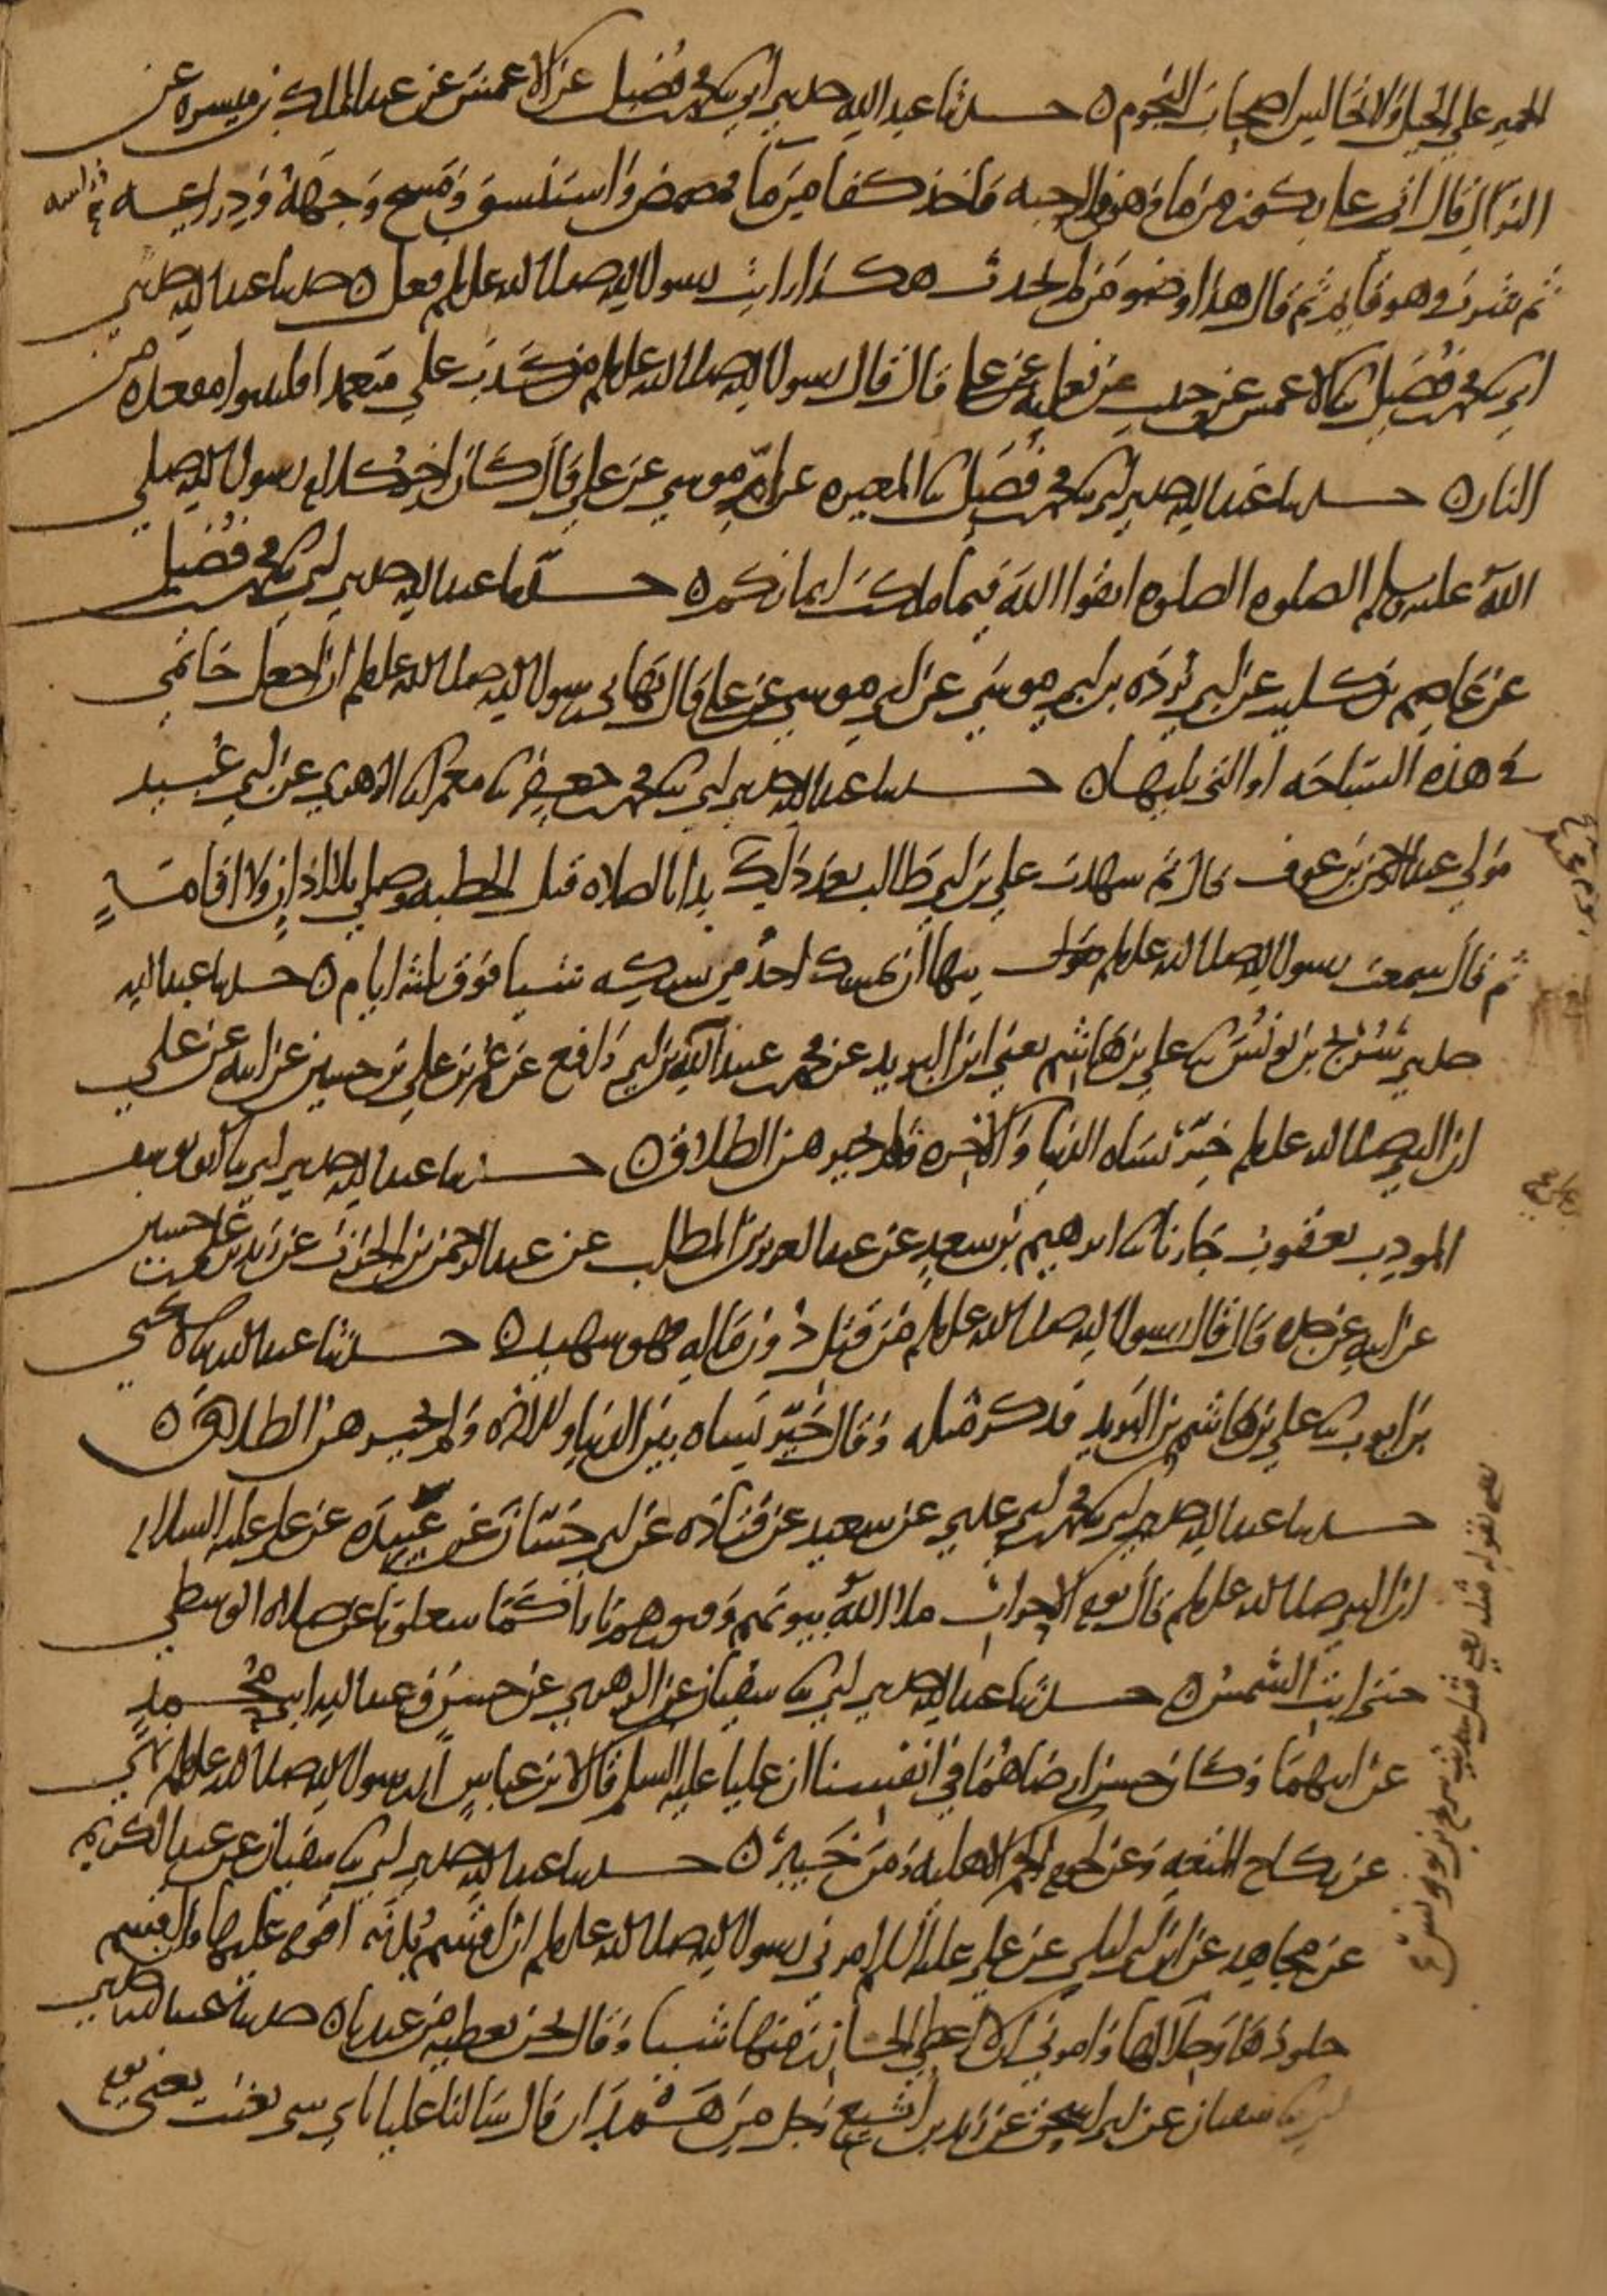 الحمير على الخيل ولا تجالس اصحاب النجوم ه حدثنا عبد الله حدثني ابي ثنا محمد بن فضيل عن الاعمش عن عبد الملك بن ميسره عن
النزال قال اتي علي بكوز من ما وهو في الرحبه فاخذ كفا من ما فمضمض واستنشق ومسح وجهه وذراعيه وراسه
ثم شرب وهو قايم ثم قال هذا وضو من لم يحدث هكذا رايت رسول الله صلى الله عليه وسلم فعل ه حدثنا عبد الله حدثني
ابي ثنا محمد بن فضيل ثنا الاعمش عن حبيب عن ثعلبه عن علي قال قال رسول الله صلى الله عليه وسلم من كذب علي متعمدا فليتبوا مقعده من
النار ه حدثنا عبد الله حدثني ابي ثنا محمد بن فضيل ثنا المغيره عن ام موسى عن علي قال كان اخر كلام رسول الله صلى
الله عليه وسلم الصلوه الصلوه اتقوا الله فيما ملكت ايمانكم ه حدثنا عبد الله حدثني ابي ثنا محمد بن فضيل
عن عاصم بن كليب عن ابي برده بن ابي موسى عن ابي موسى عن علي قال نهاني رسول الله صلى الله عليه وسلم ان اجعل خاتمي
في هذه السباحه او التي يليها ه حدثنا عبد الله حدثني ابي ثنا محمد بن جعفر ثنا معمر انا الزهري عن ابي عبيد
مولى عبد الرحمن بن عوف قال ثم شهدت علي بن ابي طالب بعد ذلك بدا بالصلاه قبل الخطبه وصلى بلا اذان ولا اقامة
ثم قال سمعت رسول الله صلى الله عليه وسلم ينها ان يمسك احد من نسكه شيا فوق ثلثه ايام ه حدثنا عبد الله
حدثني سريج بن يونس ثنا علي بن هاشم يعني ابن البريد عن محمد بن عبيد الله بن ابي رافع عن عمر بن علي بن حسين عن ابيه عن علي
ان النبي صلى الله عليه وسلم خير نساه الدنيا والاخره ولم يخيرهن الطلاق ه حدثنا عبد الله حدثني ابي ثنا ابو يوسف
المودب يعقوب جارنا ثنا ابرهيم بن سعد عن عبد العزيز بن المطلب عن عبد الرحمن بن الحرث عن زيد بن علي بن حسين
عن ابيه عن جده قال قال رسول الله صلى الله عليه وسلم من قتل دون ماله فهو شهيد ه حدثنا عبد الله ثنا يحيى
بن ايوب ثنا علي بن هاشم بن البريد فذكر مثله وقال خير نساه بين الدنيا والاخره ولم يخيرهن الطلاق ه
حدثنا عبد الله حدثني ابي ثنا محمد بن ابي عدي عن سعيد عن قتاده عن ابي حسان عن عبيده عن علي عليه السلام
ان النبي صلى الله عليه وسلم قال يوم الاحزاب ملا الله بيوتهم وقبورهم نارا كما شغلونا عن صلاه الوسطى
حتى ابت الشمس ه حدثنا عبد الله حدثني ابي ثنا سفيان عن الزهري عن حسن وعبد الله ابني محمد
عن ابيهما وكان حسن ارضاهما في انفسنا ان عليا عليه السلم قال لابن عباس ان رسول الله صلى الله عليه وسلم نهى
عن نكاح المتعه وعن لحوم الحمر الاهليه زمن خيبر ه حدثنا عبد الله حدثني ابي ثنا سفيان عن عبد الكريم
عن مجاهد عن ابن ابي ليلى عن علي عليه السلام امرني رسول الله صلى الله عليه وسلم ان اقسم بدنه اقوم عليها وان اقسم
جلودها وجلالها وامرني ان لا اعطي الجازر منها شيا وقال نحن نعطيه من عندنا ه حدثنا عبد الله حدثني
ابي ثنا سفيان عن ابي اسحق عن زيد بن اثيع رجل من همدان قال سالنا عليا باي شي بعثت يعني يوم
يعني بقوله مثله يعني قبل حديث سريج بن يونس